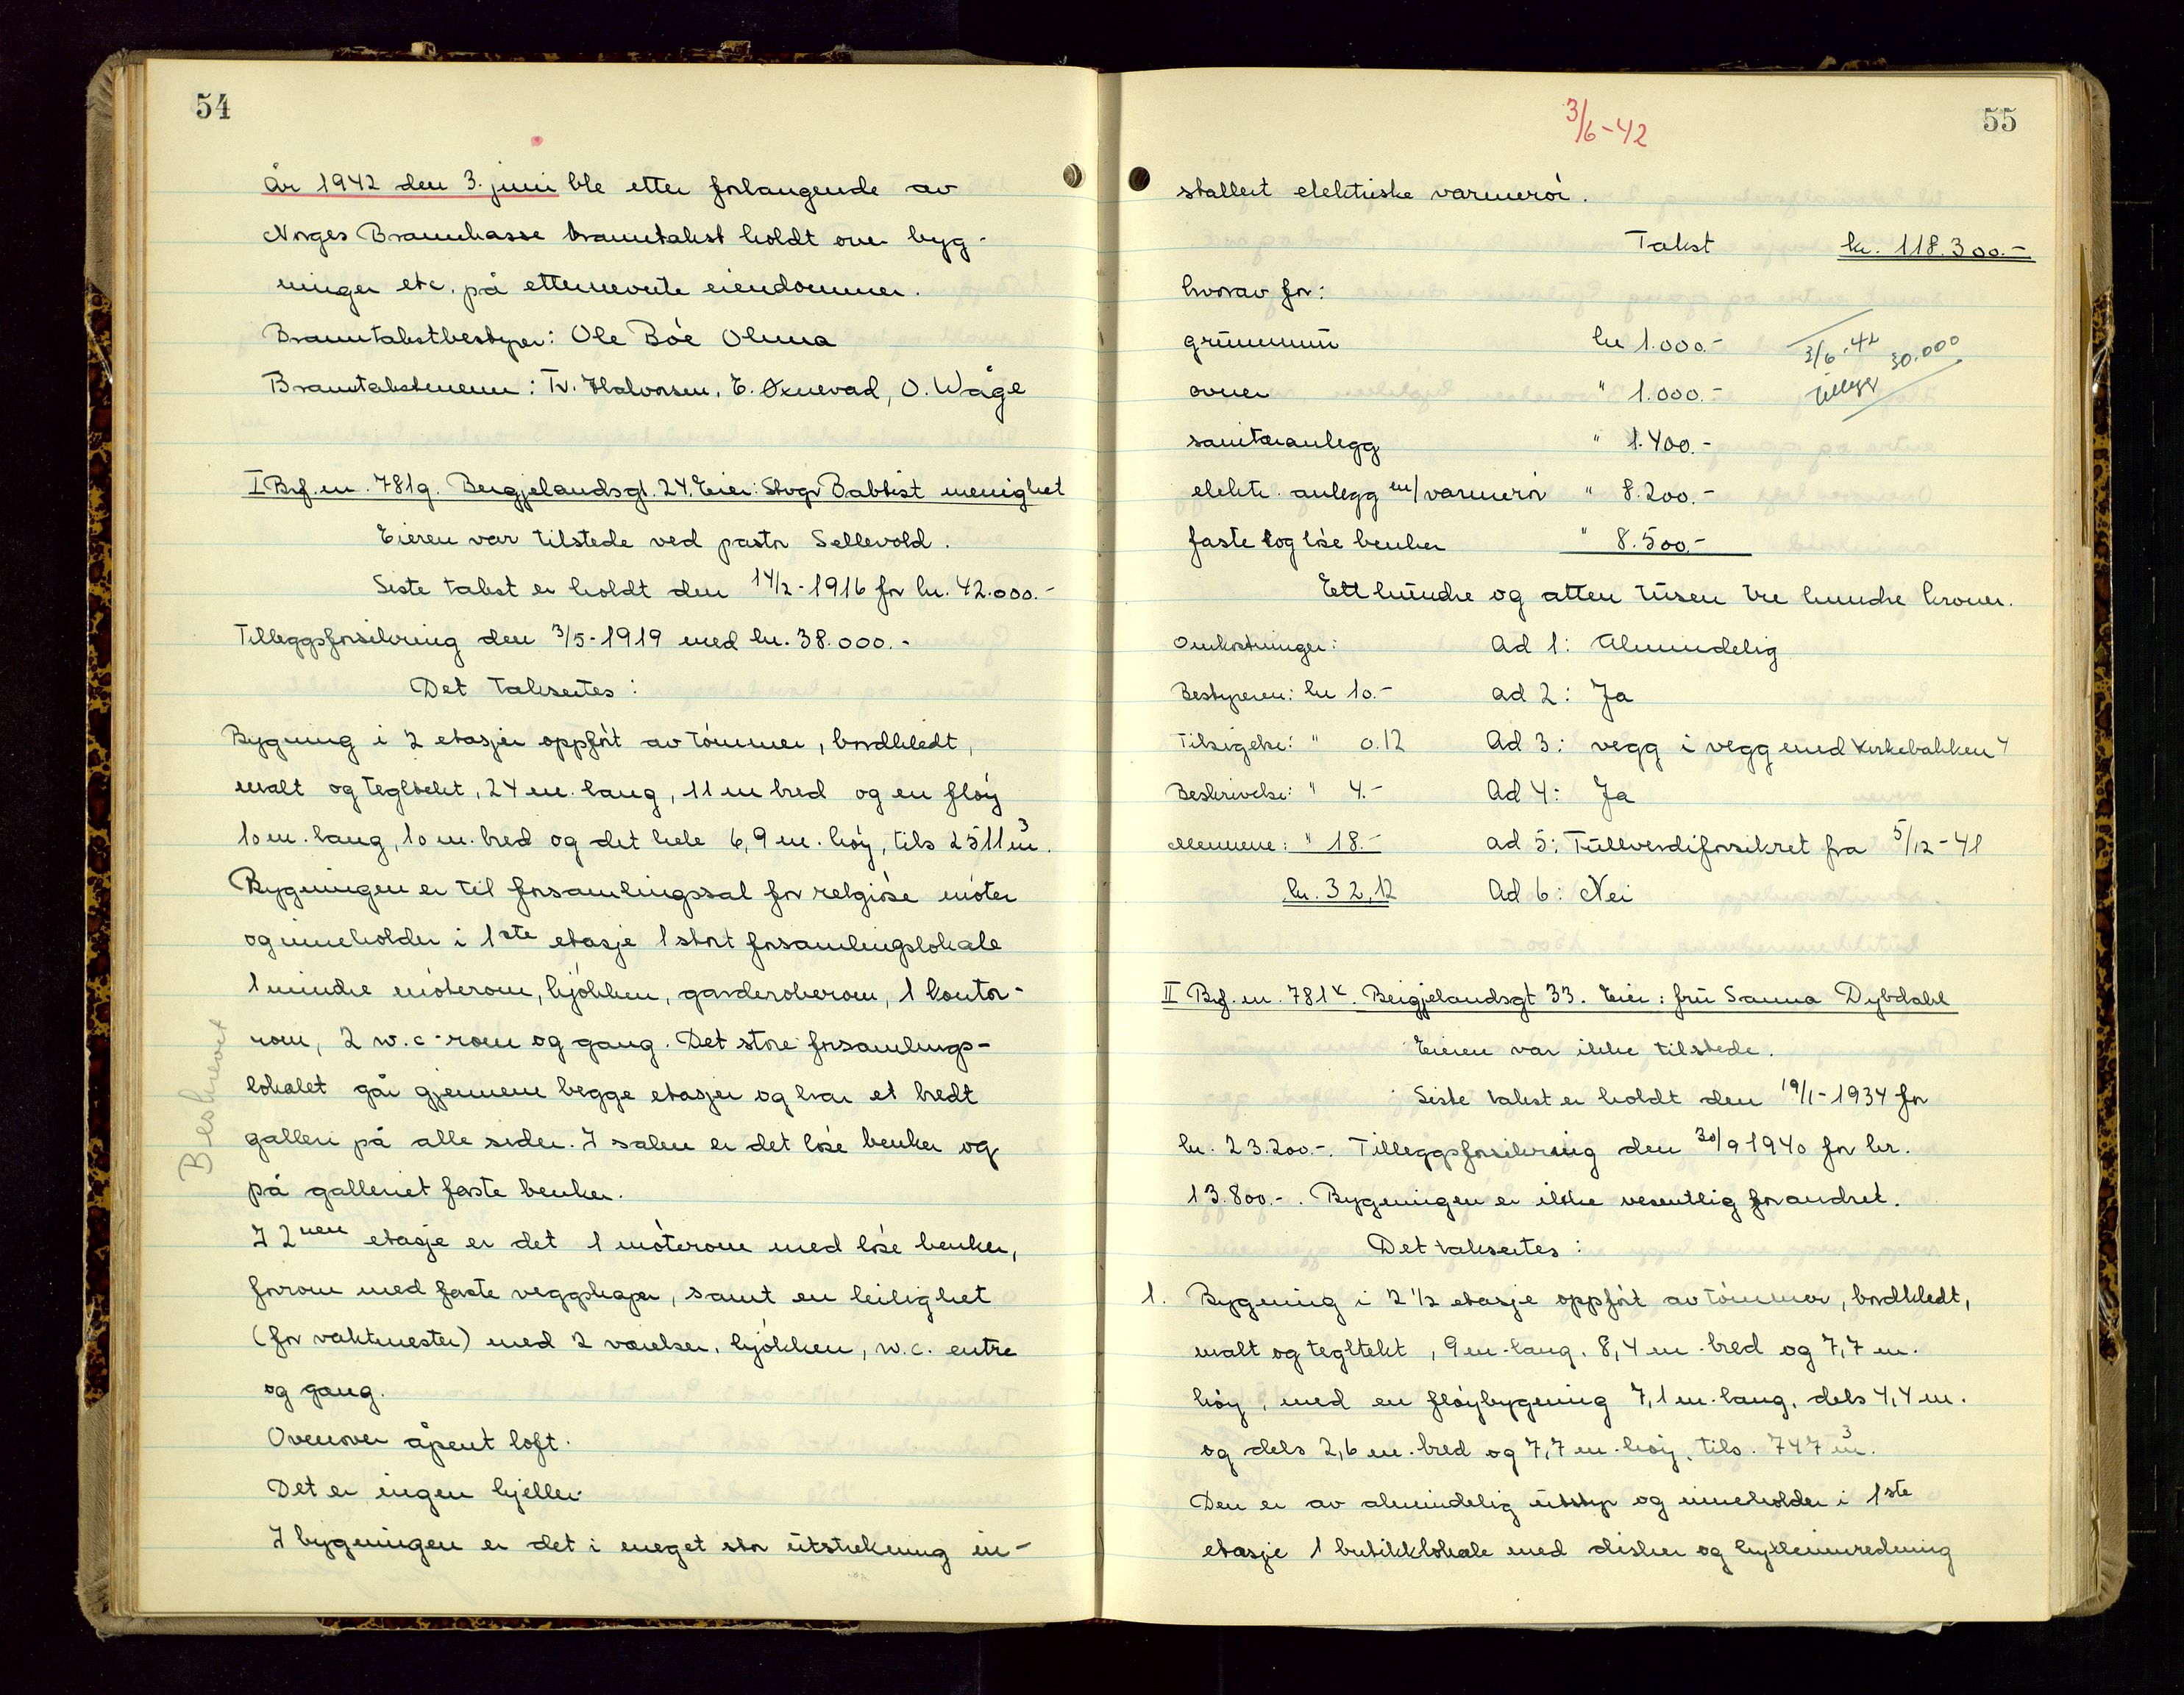 54
År 1942 den 3. juni ble etter forlangende av
Norges Brannkasse branntakst holdt over byg-
ninger etc. på etternevnte eiendommer.
Branntakstbestyrer: Ole Bøe Oluma
Branntakstmenn: Tr. Halvorsen, E. Oxnevad, O. Wåge
I Brf. nr. 781g. Bergjelandsgt. 24. Eier: Stvgr Babtist menighet
Eieren var tilstede ved pastor Sellevold.
Siste takst er holdt den 14/2-1916 for kr. 42.000.-
Tilleggsforsikring den 3/5-1919 med kr. 38.000.-
Det takseres:
Bygning i 2 etasjer oppført av tømmer, bordkledt,
malt og tegltekt, 24 m. lang, 11 m bred og en fløy
10 m. lang, 10 m. bred og det hele 6,9 m. høy, tils 2511 m3.
Bygningen er til forsamlingssal for relgiøse møter
og inneholder i 1ste etasje 1 stort forsamlingslokale
1 mindre møterom, kjøkken, garderoberom, 1 kontor-
rom, 2 w.c-rom og gang. Det store forsamlings-
lokalet går gjennem begge etasjer og har et bredt
galleri på alle sider. I salen er det løse benker og
på galleriet faste benker.
I 2nen etasje er det 1 møterom med løse benker,
forrom med faste veggskaper, samt en leilighet
(for vaktmester) med 2 værelser, kjøkken, w.c. entre
og gang.
Ovenover åpent loft.
Det er ingen kjeller.
I bygningen er det i meget stor utstrekning in-
Beskrevet
3/6-42
55
stallert elektriske varmerør.
Takst kr. 118.300.-
hvorav for:
grunnmur kr 1.000.-
ovner " 1.000.-
3/6-42 30.000
tillegg
sanitæranlegg " 1.400.-
elektr. anlegg m/varmerør " 8.200.-
faste og løse benker " 8.500.-
Ett hundre og atten tusen tre hundre kroner.
Omkostninger: Ad 1: Almindelig
Bestyreren: kr 10.- ad 2: Ja
Tilsigelse: " 0.12 Ad 3: vegg i vegg med Kirkebakken 4
Beskrivelse: " 4.- Ad 4: Ja
Mennene: " 18.- ad 5: Fullverdiforsikret fra 5/12-41
kr. 32,12 Ad 6: Nei
II Brf. nr. 781k. Bergjelandsgt 33. Eier: fru Sanna Dybdahl
Eieren var ikke tilstede.
Siste takst er holdt den 19/1-1934 for
kr. 23.200.-. Tilleggsforsikring den 30/9 1940 for kr.
13.800.-. Bygningen er ikke vesentlig forandret.
Det takseres:
1. Bygning i 2 1/2 etasje oppført av tømmer, bordkledt,
malt og tegltekt, 9 m. lang, 8,4 m. bred og 7,7 m.
høy, med en fløybygning 7,1 m. lang, dels 4,4 m.
og dels 2,6 m. bred og 7,7 m. høy, tils. 747 m3.
Den er av almindelig utstyr og inneholder i 1ste
etasje 1 butikklokale med disker og hylleinnredning